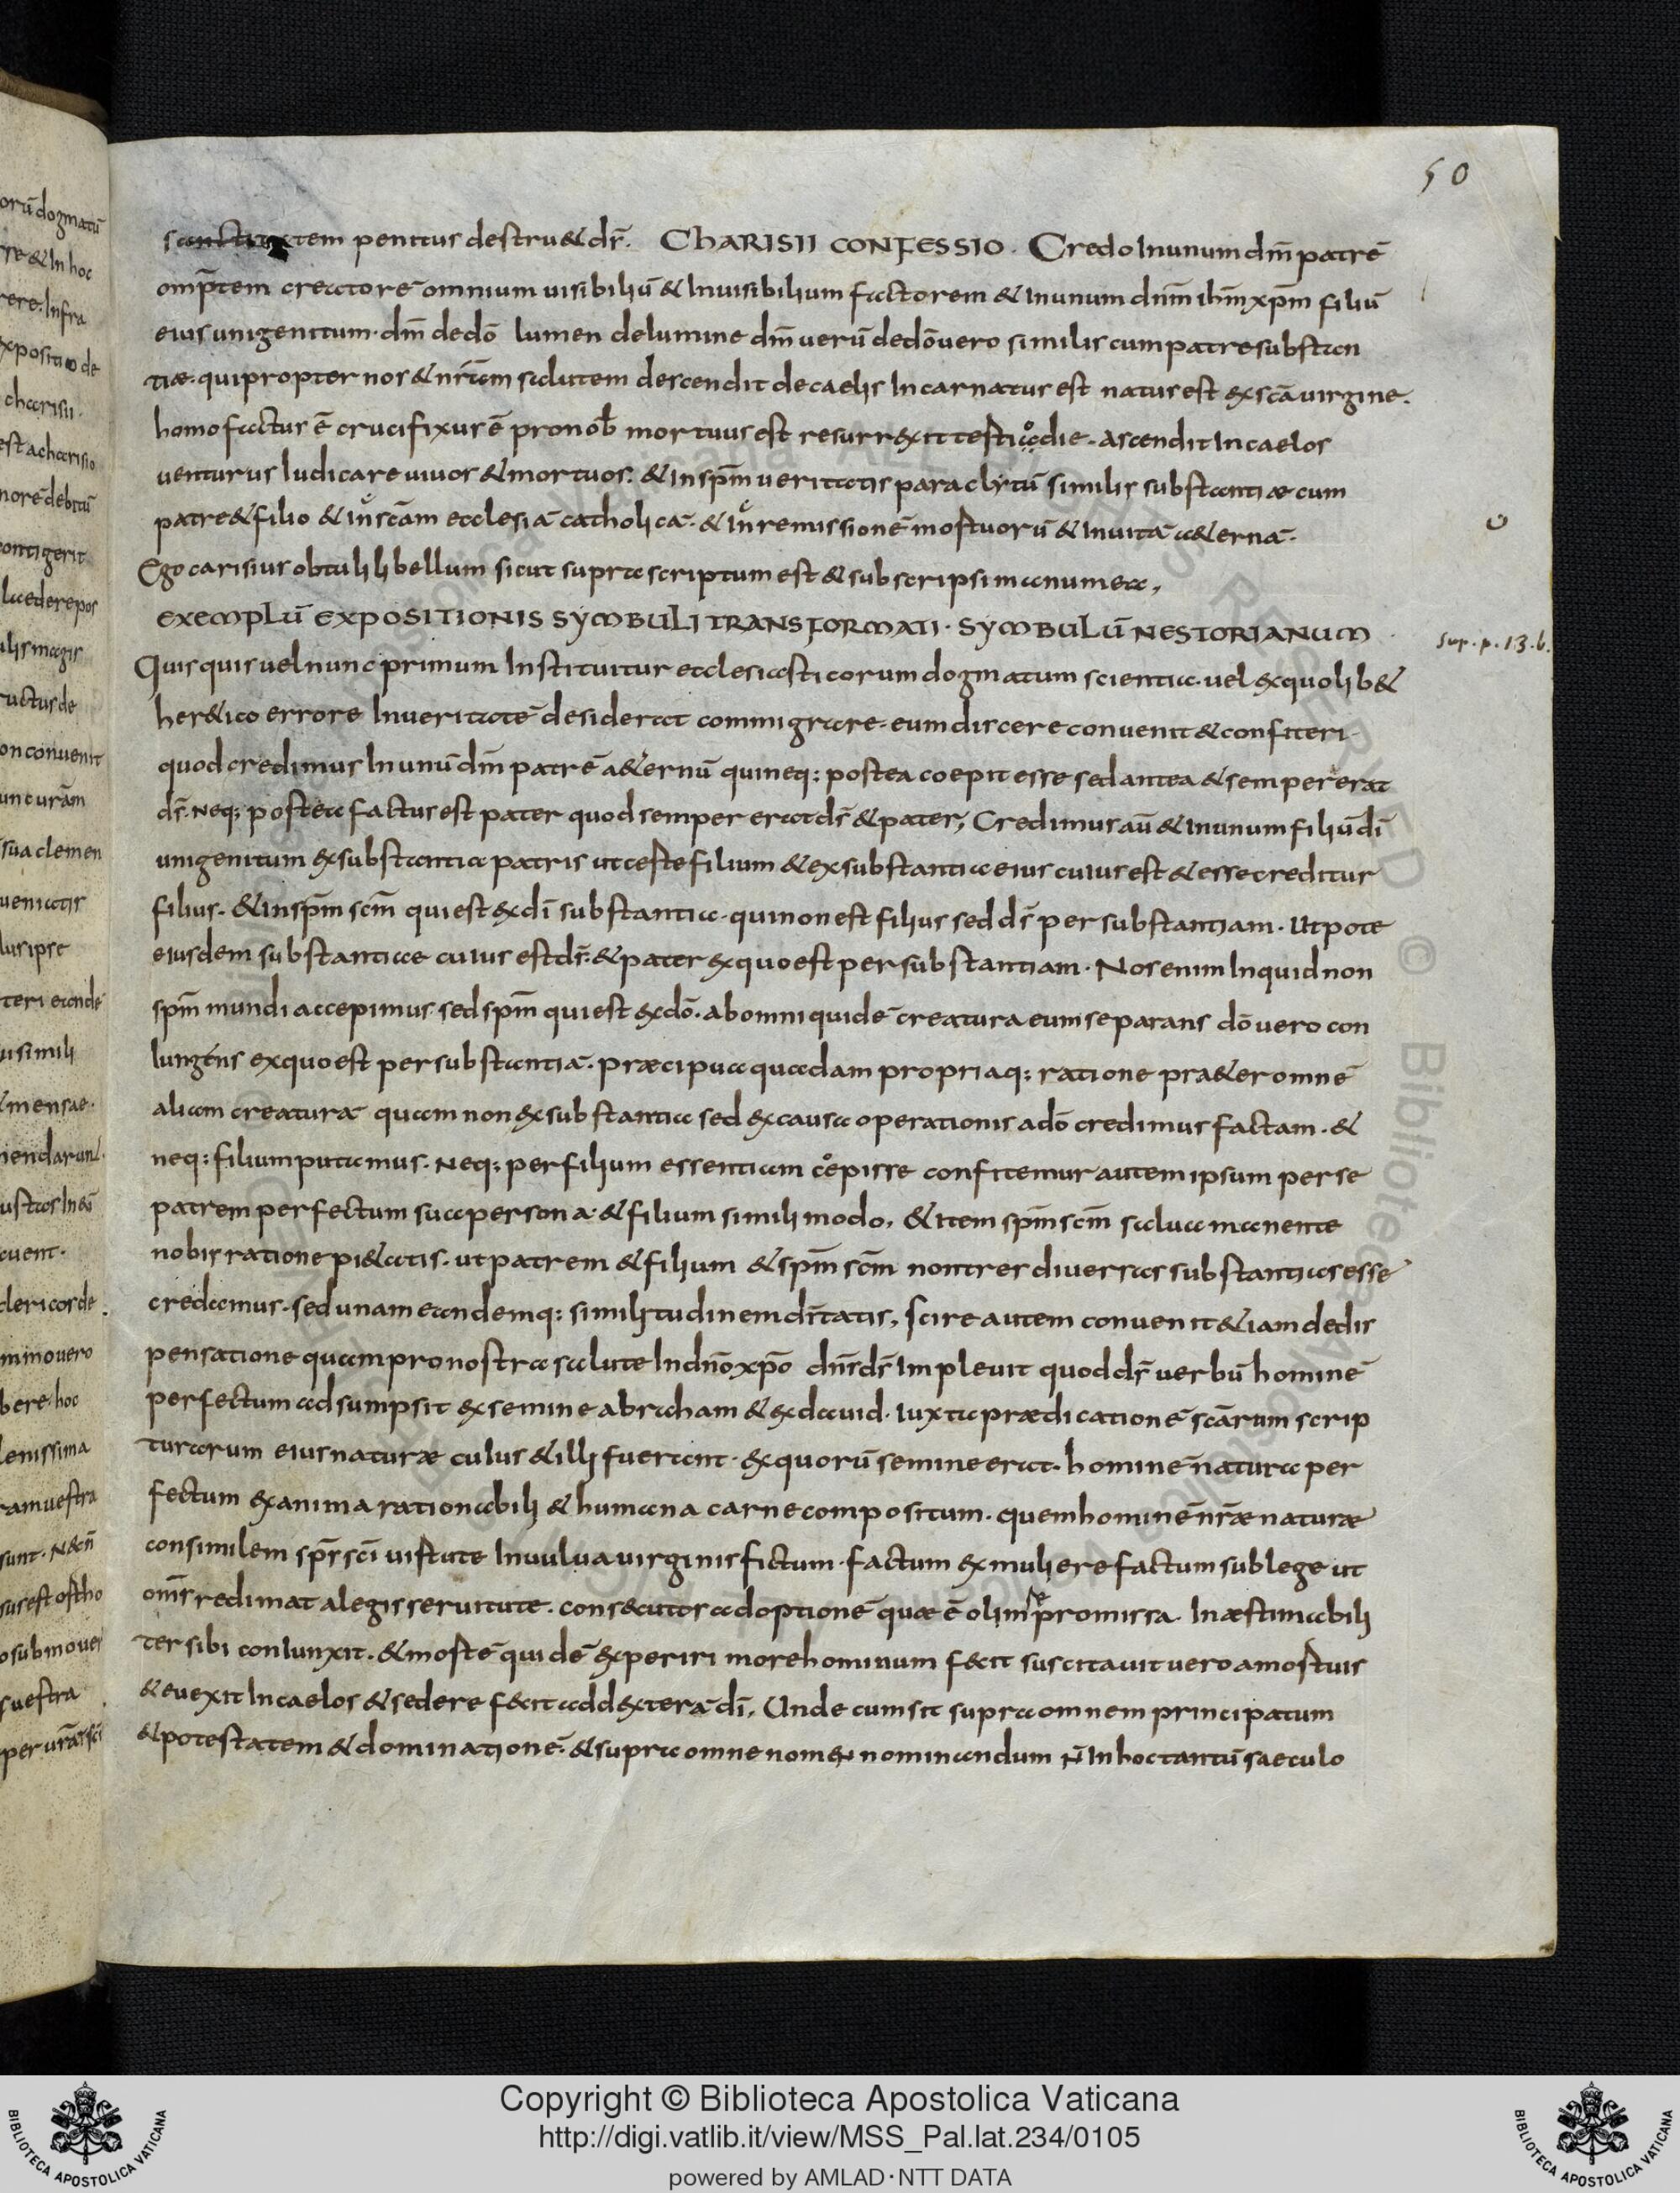 50
tem penitus destru& dr̄. CHARISII CONFESSIO. Credo In unum dm̄ patrē
omp̄tem creatorē omnium uisibiliū & Inuisibilium factorem & In unum dnm̄ ihm̄ xpm̄ filiū
eius unigenitum. dm̄ de dō lumen de lumine dm̄ uerū de dō uero similis cum patre substan
tiæ. qui propter nos & nr̄am salutem descendit de caelis Incarnatus est natus est ex scā uirgine.
homo factus ē crucifixus ē pro nob̄ mortuus est resurrexit die. ascendit In caelos
uenturus Iudicare uiuos & mortuos. & In spm̄ ueritatis paraclytū similis substantiæ cum
patre & filio & In scām ecclesiā catholicā. & In remissionē mortuorū & In uitā a&ernā.
Ego carisius obtuli libellum sicut supra scriptum est & subscripsi manu mea,
EXEMPLŪ EXPOSITIONIS SYMBULI TRANSFORMATI. SYMBULŪ NESTORIANUM
sup. p. 13. b.
Quisquis uel nunc primum Instituitur ecclesiasticorum dogmatum scientia. uel ex quolib&
her&ico errore In ueritatē desiderat commigrare. eum discere conuenit & confiteri.
quod credimus In unū dm̄ patrē a&ernū qui neq; postea coepit esse sed antea & semper erat
ds̄. Neq; postea factus est pater quod semper erat ds̄ & pater; Credimus aū & In unum filiū dī
unigenitum ex substantia patris ut certe filium & ex substantia eius cuius est & esse creditur
filius. & In spm̄ scm̄ qui est ex dī substantia. qui non est filius sed ds̄ per substantiam. Utpote
eiusdem substantiae cuius est ds̄. & pater ex quo est per substantiam. Nos enim Inquid non
spm̄ mundi accepimus sed spm̄ qui est ex dō. ab omni quidē creatura eum separans dō uero con
Iungens ex quo est per substantiā. præcipua quadam propriaq; ratione pra&er omnē
aliam creaturā quam non ex substantia sed ex causa operationis a dō credimus factam. &
neq; filium putamus. Neq; per filium essentiam cepisse confitemur autem ipsum per se
patrem perfectum sua persona. & filium simili modo, & item spm̄ scm̄ salua manente
nobis ratione pi&atis. ut patrem & filium & spm̄ scm̄ non tres diuersas substantias esse
credamus. sed unam eandemq; similitudinem dī̄tatis, scire autem conuenit & iam de dis
pensatione quam pro nostra salute In dnō xpō dns̄ ds̄ Impleuit quod ds̄ uerbū hominē
perfectum adsumpsit ex semine abraham & ex dauid. iuxta prædicationē scārum scrip
turarum eius naturæ cuius & illi fuerant. ex quorū semine erat. hominē natura per
fectum ex anima rationabili & humana carne compositum. quem hominē nr̄æ naturæ
consimilem sps̄ scī uirtute In uulua uirginis fictum. factum ex muliere factum sub lege ut
oms̄ redimat a legis seruitute. consecutos adoptionē quæ ē olim promissa. Inæstimabili
ter sibi coniunxit. & mortē quidē experiri more hominum fecit suscitauit uero a mortuis
& euexit In caelos & sedere fecit ad dexterā dī, Unde cum sit supra omnem principatum
& potestatem & dominationē. & supra omne nomen nominandum n̄ In hoc tantū saeculo
Copyright © Biblioteca Apostolica Vaticana
http://digi.vatlib.it/view/MSS_Pal.lat.234/0105
powered by AMLAD·NTT DATA